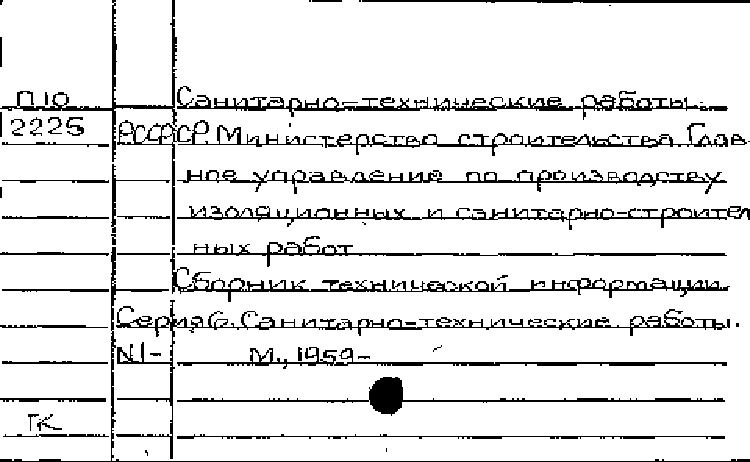 П10 Санитарно-технические работы.
2225 РСФСР. Министерство строительства. Глав-
ное управление по производству
изоляционных и санитарно-строител
ных работ
Сборник технической информации.
Серия 6. Санитарно-технические работы.
N1- М., 1959-
ТК